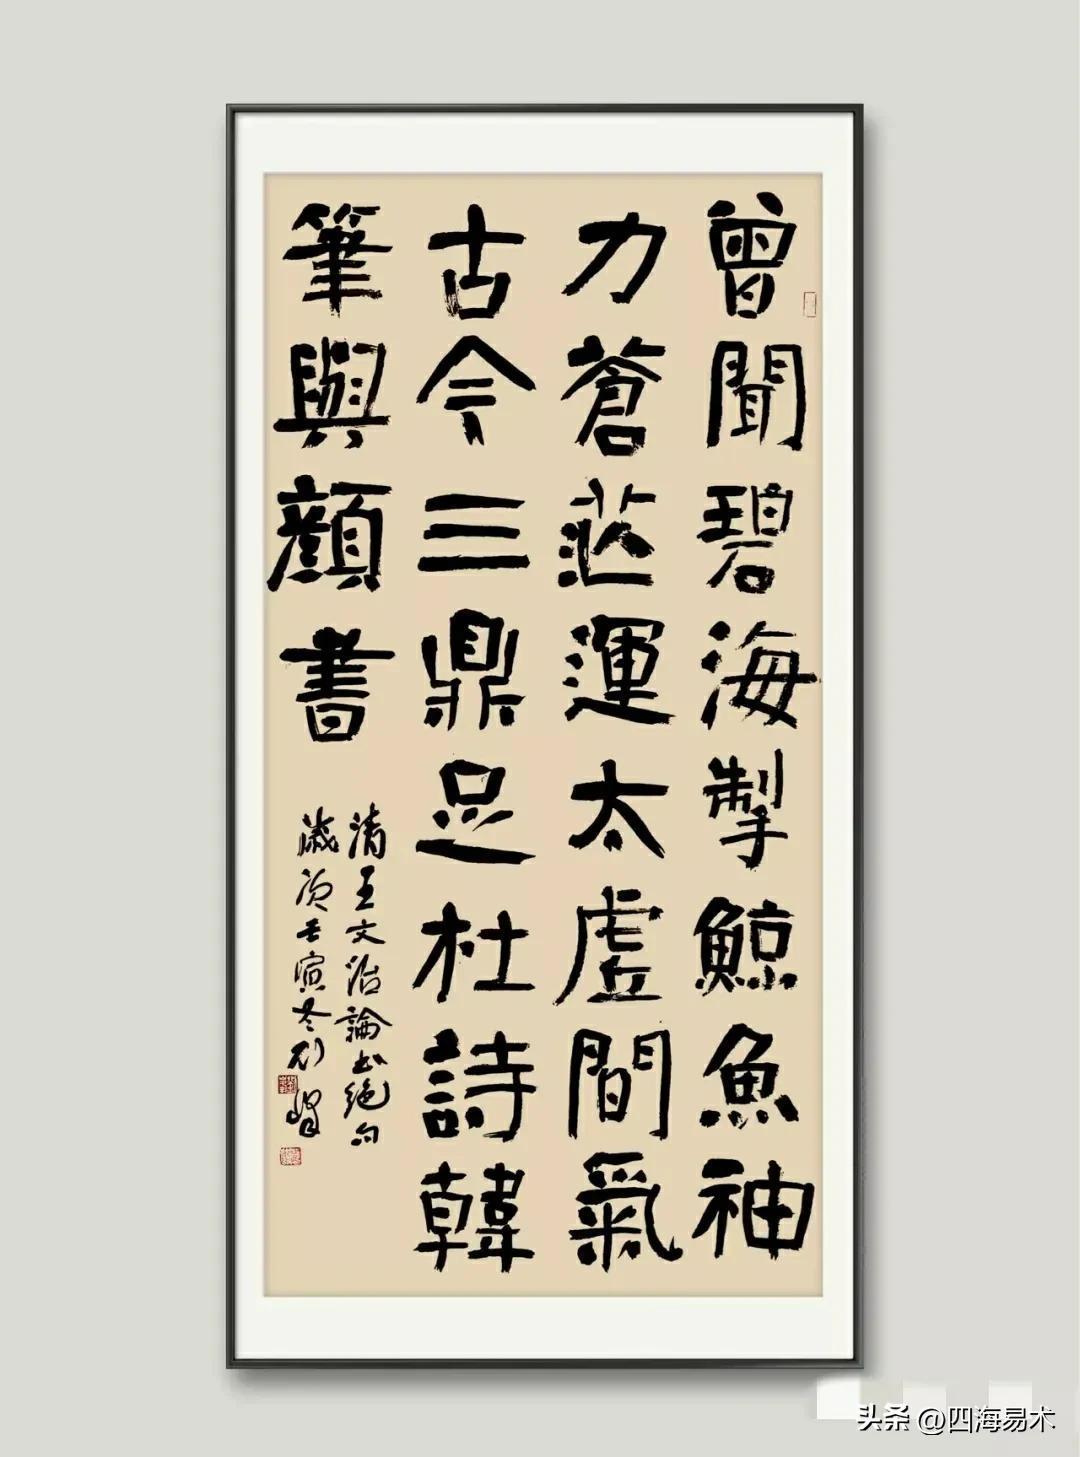 曾聞碧海掣鯨魚神
力蒼茫運太虛間氣
古今三鼎足杜詩韓
筆與顏書
清王文治論书絕句
歲次壬寅冬刘
头条 @四海易术